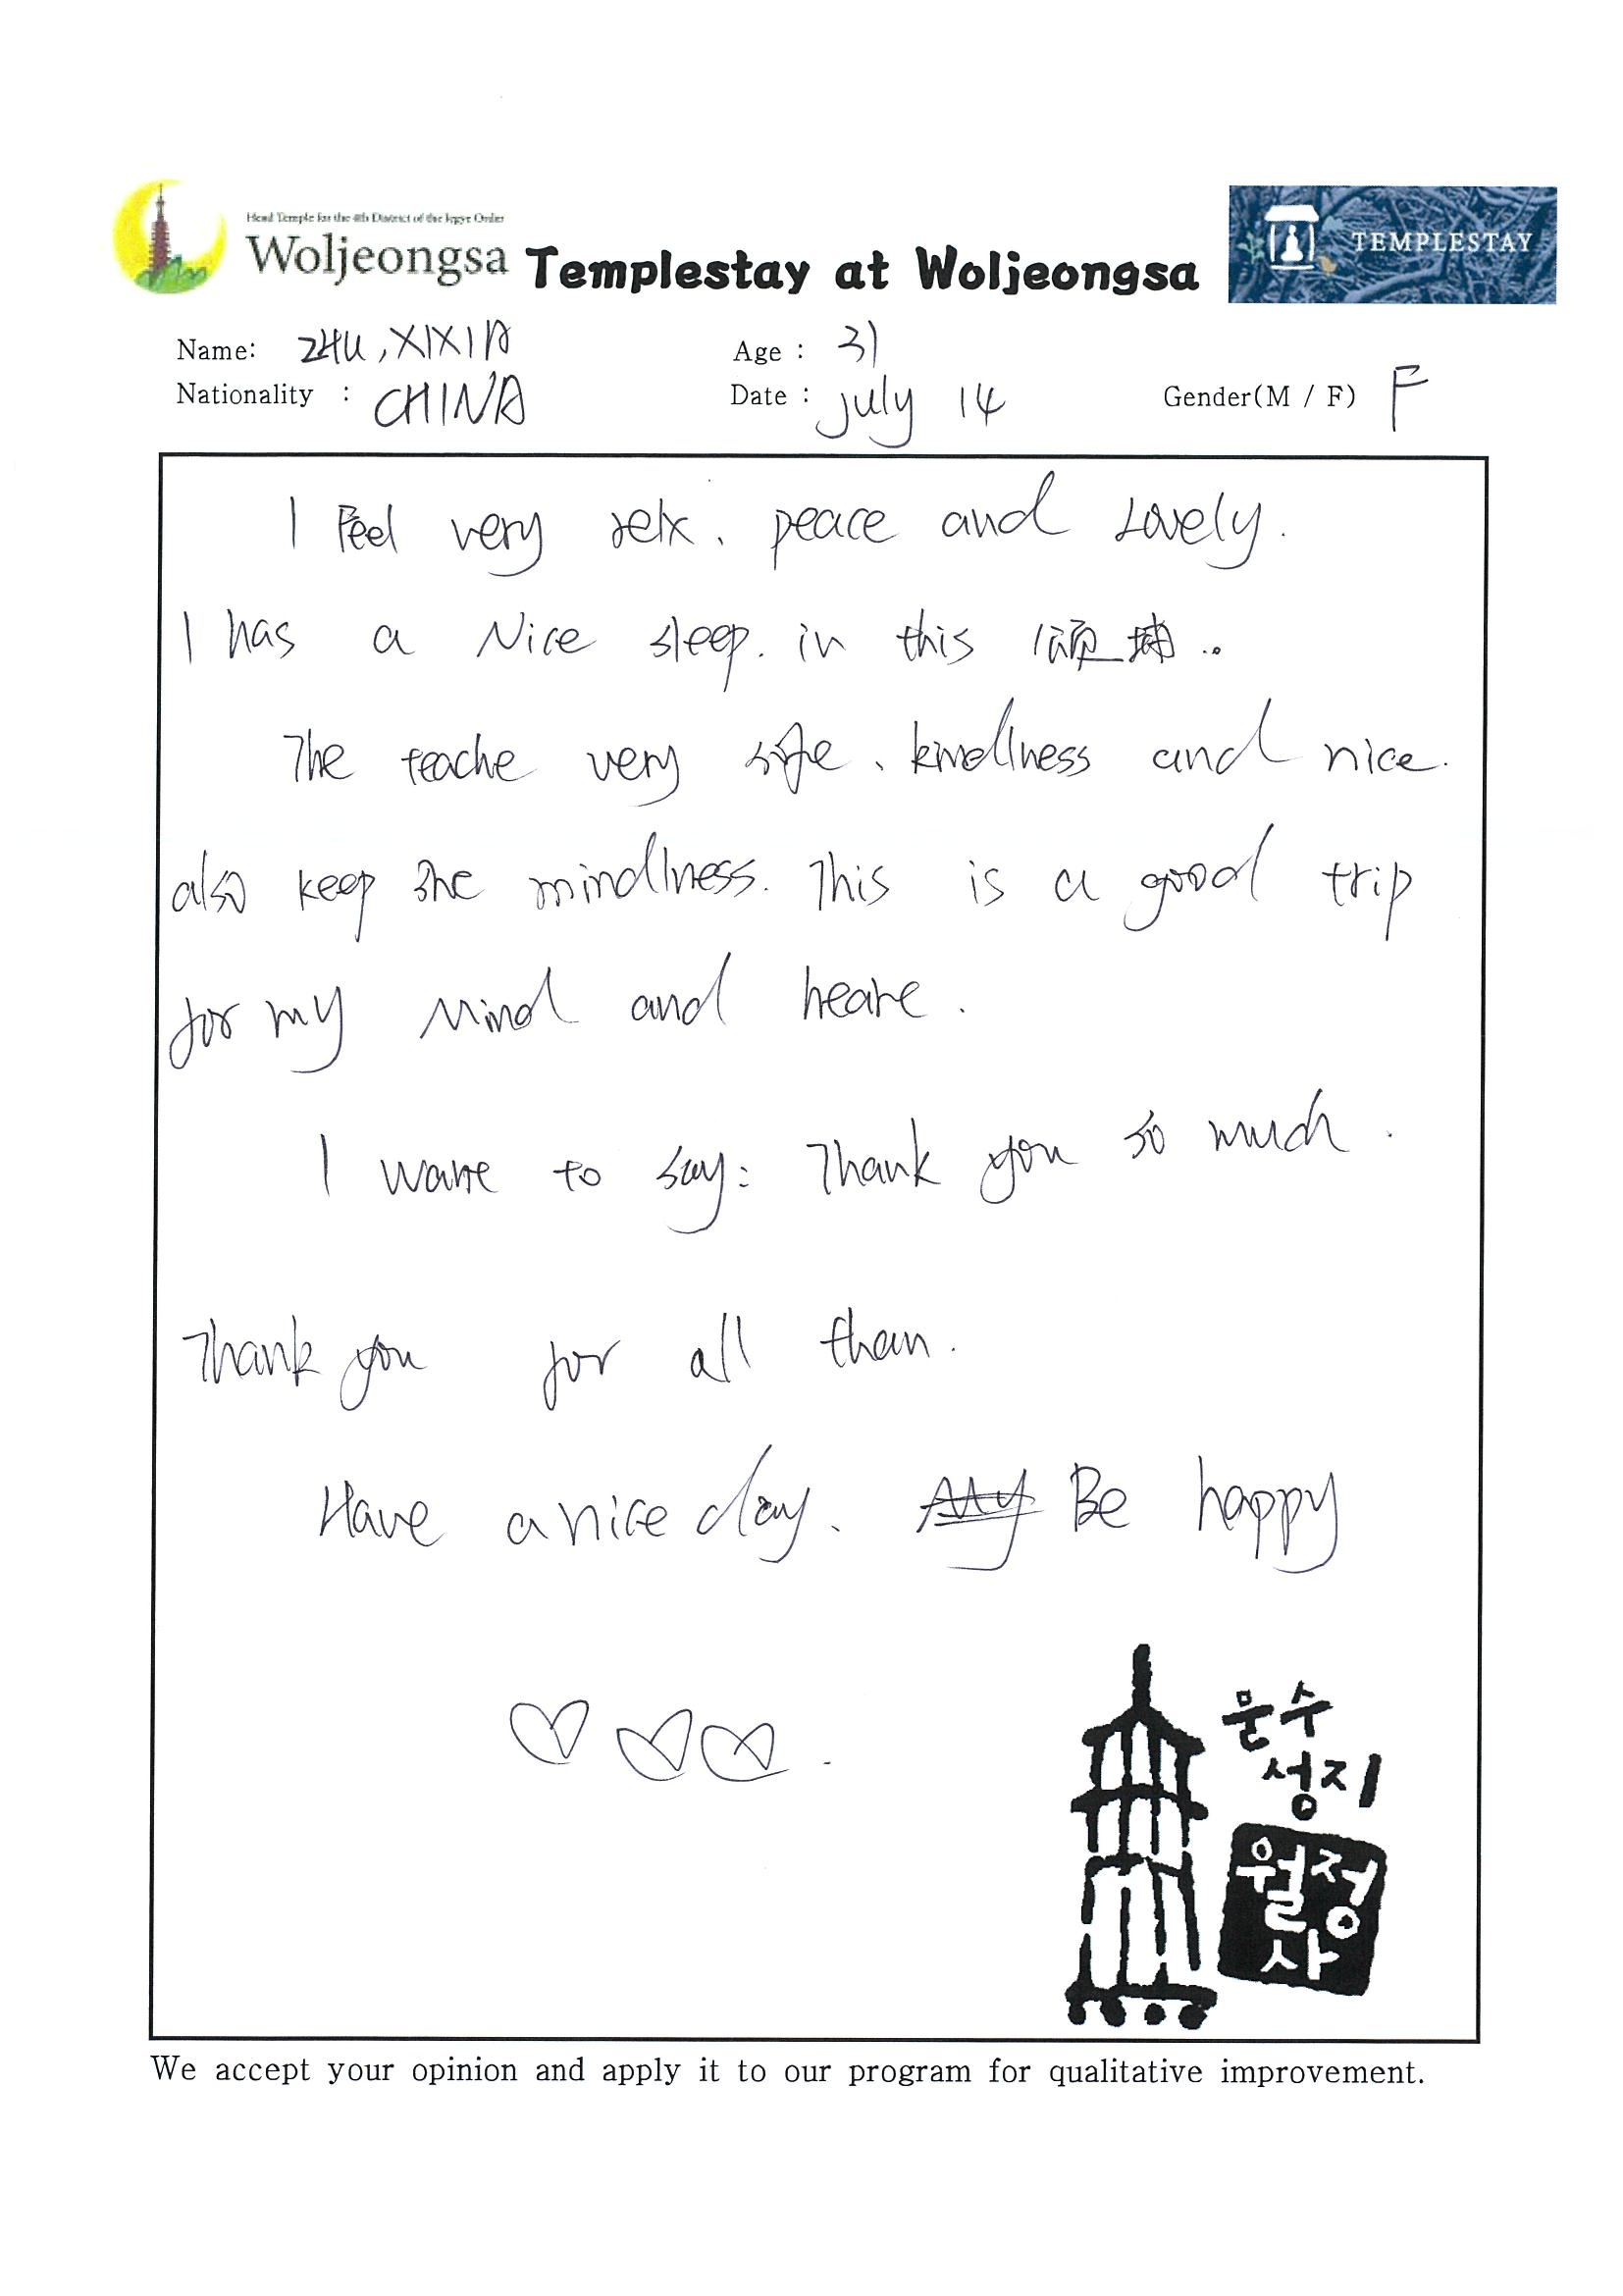 Head Temple for the 4th District of the Jogye Order
Woljeongsa Templestay at Woljeongsa
TEMPLESTAY
Name: ZHU, XIXIA Age : 31
Nationality : CHINA Date : july 14 Gender(M / F) F
I Feel very relx, peace and Lovely.
I has a Nice sleep. in this
The teache very , kindlness and nice.
also keep the mindlness. This is a good trip
for my Mind and heare.
I wante to say: Thank you so much.
Thank you for all than.
Have a nice day. Be happy
문수
성지
월정
사
We accept your opinion and apply it to our program for qualitative improvement.